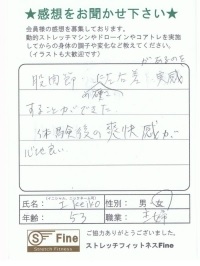 ★感想をお聞かせ下さい★
会員様の感想を募集しております。
動的ストレッチマシンやドローインやコアトレを実施
してからの身体の調子や変化など教えてください。
(イラストも大歓迎です)
があるのを
股関節 左右差 実感
明確に
することができた。
体験後の爽快感が
心地良い。
(イニシャル、ニックネーム可)
氏名: I.Keiko 性別: 男 女
年齢: 53 職業: 主婦
ご協力ありがとうございました。
S Fine ストレッチフィットネスFine
Stretch Fitness